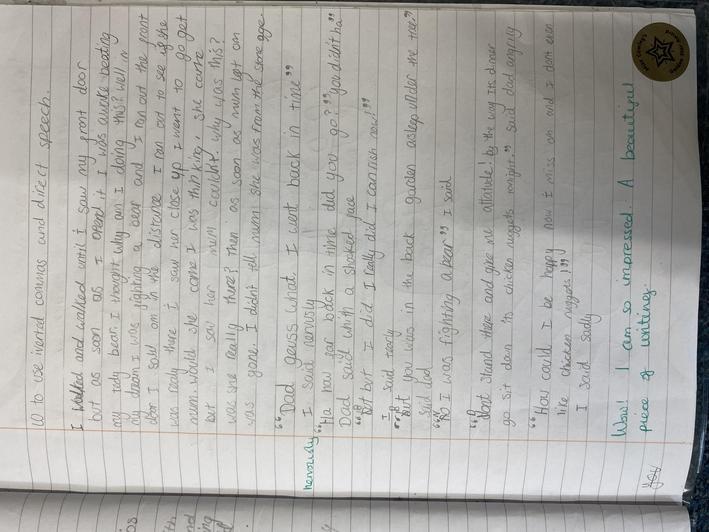 LO to use inverted commas and direct speech.
I walked and walked until I saw my front door
but as soon as I opend it I was awake beating
my tedy bear. I thought why am I doing this? Well in
my dream I was fighting a bear and I ran out the front
door I sold am in the distance I ran out to see if she
was realy there I saw her close up I went to go get
mum. would she come I was thinking. she came
but I saw her mum couldnt. why was this?
was she really there? Then as soon as mum left am
was gone. I didn't tell mum she was from the stone age.
"Dad geuss what. I went back in time"
I said nervosly
nervously
"Ha how far back in time did you go?" "you didn't ha"
Dad said with a shocked face
"But but I did I really did I can rish now!"
I said tearly
"But you was in the back garden asleep under the tree?"
said dad
"No I was fighting a bear" I said
"Dont stand there and give me attatude! by the way its dinner
go sit down its chicken nuggets tonight." Said dad angrily
"How could I be happy now I miss am and I dont even
like chicken nuggets!"
I said sadly
Wow! I am so impressed. A beautiful
piece of writing.